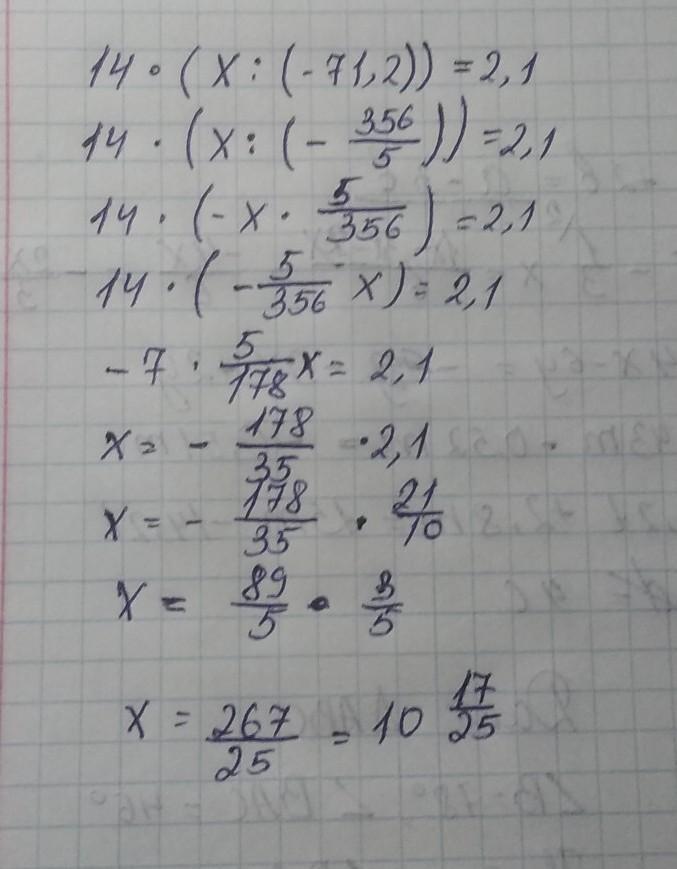 14 · (x : (-71,2)) = 2,1
14 · (x : (- 356/5)) = 2,1
14 · (-x · 5/356) = 2,1
14 · (- 5/356 x) = 2,1
-7 · 5/178 x = 2,1
x = - 178/35 · 2,1
x = - 178/35 · 21/10
x = 89/5 · 3/5
x = 267/25 = 10 17/25